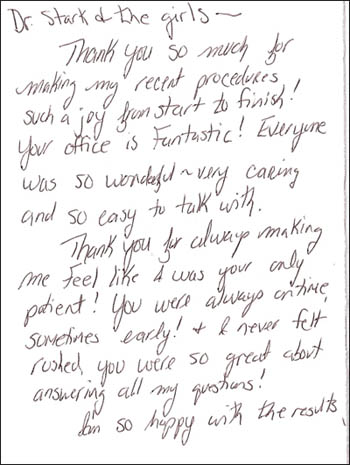 Dr. Stark & the girls ~
Thank you so much for
making my recent procedures
such a joy from start to finish!
Your office is Fantastic! Everyone
was so wonderful ~ very caring
and so easy to talk with.
Thank you for always making
me feel like I was your only
patient! You were always on time,
sometimes early! & I never felt
rushed, you were so great about
answering all my questions!
I'm so happy with the results,